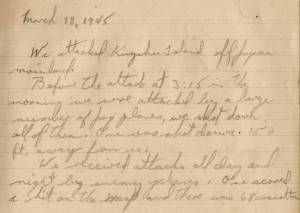 March 18, 1945
We attacked Kyushu Island off Japan
mainland.
Before the attack at 3:15 in the
morning we were attacked by a large
number of Jap planes, we shot down
all of them. One was shot down 150
ft. away from us.
We received attacks all day and
night by enemy planes. One scored
a hit on the Wasp and there was 68 casualties